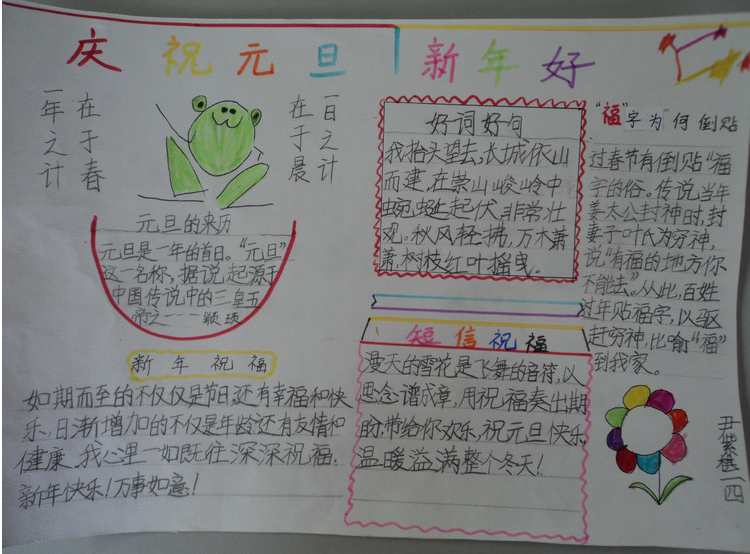 庆祝元旦
新年好
一年之计
在于春
一日之计
在于晨
元旦的来历
元旦是一年的首日。“元旦”
这一名称,据说起源于
中国传说中的三皇五
帝之一一颛顼
新年祝福
如期而至的不仅仅是节日,还有幸福和快
乐,日渐增加的不仅是年龄还有友情和
健康。我心里一如既往深深祝福:
新年快乐!万事如意!
好词好句
我抬头望去,长城依山
而建,在崇山峻岭中
蜿蜒起伏,非常壮
观。秋风轻拂,万木萧
萧,树枝红叶摇曳。
短信祝福
漫天的雪花是飞舞的音符,以
思念谱成章,用祝福奏出期
盼,带给你欢乐,祝元旦快乐
温暖溢满整个冬天!
“福”字为何倒贴
过春节有倒贴“福”
字的俗。传说,当年
姜太公封神时,封
妻子叶氏为穷神,
说“有福的地方你
不能去”。从此,百姓
过年贴福字,以驱
赶穷神,比喻“福”
到我家。
二四